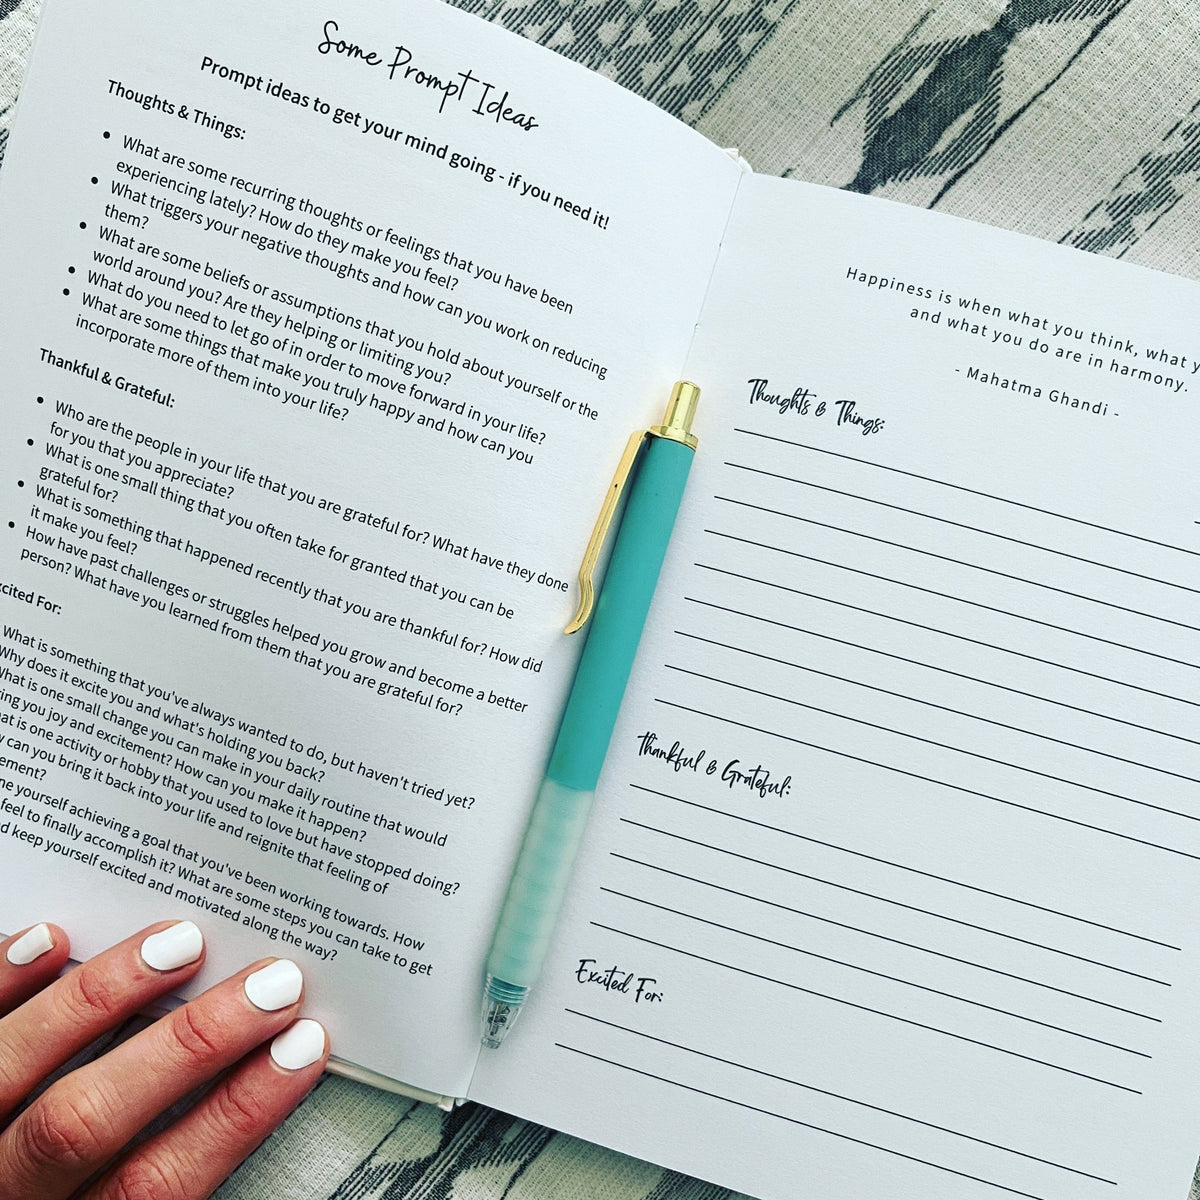 Some Prompt Ideas
Prompt ideas to get your mind going - if you need it!
Thoughts & Things:
• What are some recurring thoughts or feelings that you have been
experiencing lately? How do they make you feel?
• What triggers your negative thoughts and how can you work on reducing
them?
• What are some beliefs or assumptions that you hold about yourself or the
world around you? Are they helping or limiting you?
• What do you need to let go of in order to move forward in your life?
• What are some things that make you truly happy and how can you
incorporate more of them into your life?
Thankful & Grateful:
• Who are the people in your life that you are grateful for? What have they done
for you that you appreciate?
• What is one small thing that you often take for granted that you can be
grateful for?
• What is something that happened recently that you are thankful for? How did
it make you feel?
• How have past challenges or struggles helped you grow and become a better
person? What have you learned from them that you are grateful for?
cited For:
What is something that you've always wanted to do, but haven't tried yet?
Why does it excite you and what's holding you back?
What is one small change you can make in your daily routine that would
ing you joy and excitement? How can you make it happen?
at is one activity or hobby that you used to love but have stopped doing?
can you bring it back into your life and reignite that feeling of
ement?
ne yourself achieving a goal that you've been working towards. How
feel to finally accomplish it? What are some steps you can take to get
d keep yourself excited and motivated along the way?
Happiness is when what you think, what
and what you do are in harmony.
- Mahatma Ghandi -
Thoughts & Things:
Thankful & Grateful:
Excited For: